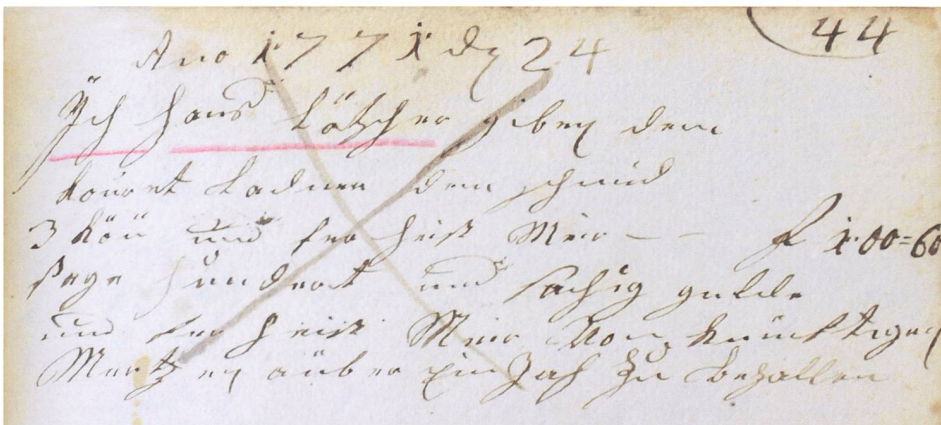 44
Ano 1771 dz 24
Ich Hans Lötscher giben dem
dem schmid
3 Köü und fer heist Mier — — f 100=60
sage hundert und sächzig gulde
und fer heist Mier Von künftigen
Mertzen äüber Ein Jah zu bezallen